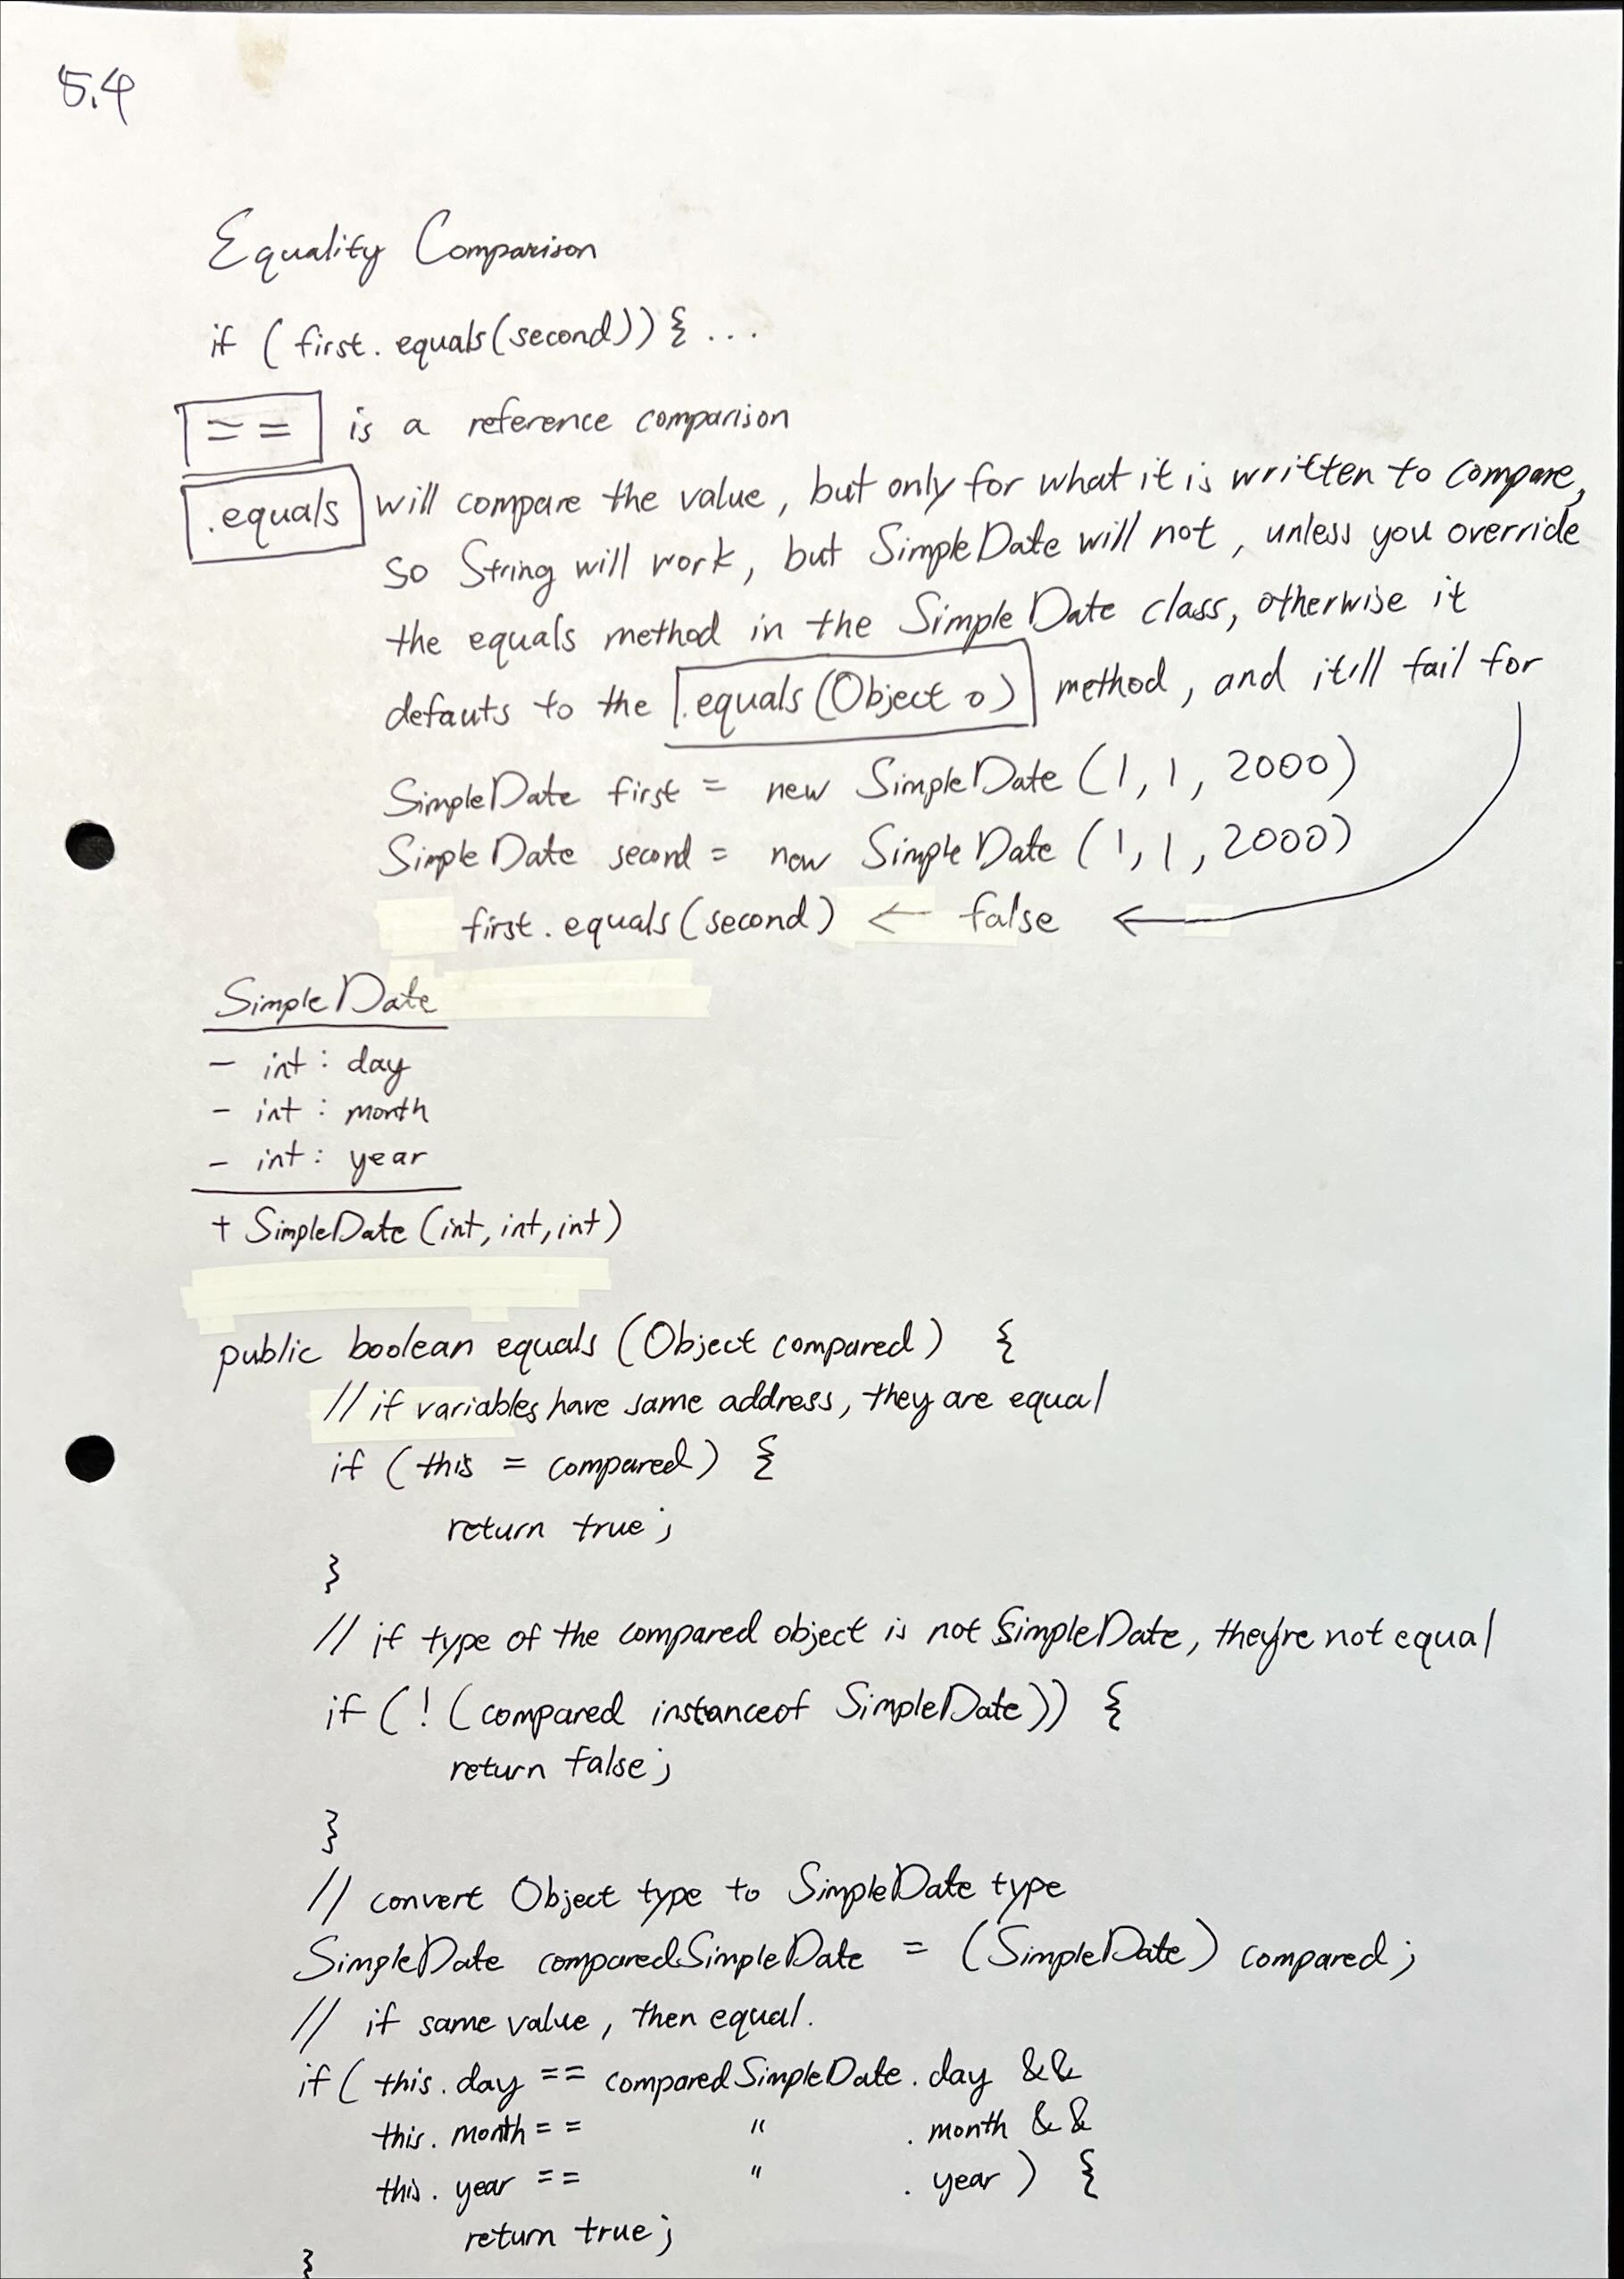 5.4
Equality Comparison
if (first.equals(second)) { ...
== is a reference comparison
.equals will compare the value, but only for what it is written to compare,
so String will work, but SimpleDate will not, unless you override
the equals method in the SimpleDate class, otherwise it
defauts to the .equals(Object o) method, and it'll fail for
SimpleDate first = new SimpleDate (1, 1, 2000)
SimpleDate second = new SimpleDate (1, 1, 2000)
first.equals(second) ← false ←
SimpleDate
- int : day
- int : month
- int : year
+ SimpleDate (int, int, int)
public boolean equals (Object compared) {
// if variables have same address, they are equal
if (this = compared) {
return true;
}
// if type of the compared object is not SimpleDate, they're not equal
if (! (compared instanceof SimpleDate)) {
return false;
}
// convert Object type to SimpleDate type
SimpleDate comparedSimpleDate = (SimpleDate) compared;
// if same value, then equal.
if (this.day == comparedSimpleDate.day &&
this.month == " .month &&
this.year == " .year) {
return true;
}